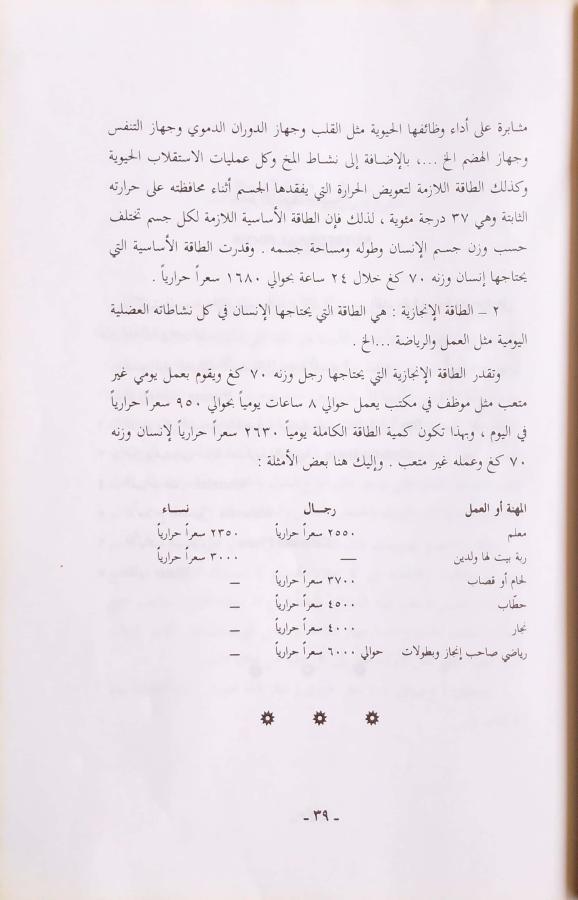 مثابرة على أداء وظائفها الحيوية مثل القلب وجهاز الدوران الدموي وجهاز التنفس
وجهاز الهضم الخ ...، بالإضافة إلى نشاط المخ وكل عمليات الاستقلاب الحيوية
وكذلك الطاقة اللازمة لتعويض الحرارة التي يفقدها الجسم أثناء محافظته على حرارته
الثابتة وهي ٣٧ درجة مئوية ، لذلك فإن الطاقة الأساسية اللازمة لكل جسم تختلف
حسب وزن جسم الإنسان وطوله ومساحة جسمه . وقدرت الطاقة الأساسية التي
يحتاجها إنسان وزنه ٧٠ كغ خلال ٢٤ ساعة بحوالي ١٦٨٠ سعراً حرارياً .
٢ – الطاقة الإنجازية : هي الطاقة التي يحتاجها الإنسان في كل نشاطاته العضلية
اليومية مثل العمل والرياضة ...الخ .
وتقدر الطاقة الإنجازية التي يحتاجها رجل وزنه ٧٠ كغ ويقوم بعمل يومي غير
متعب مثل موظف في مكتب يعمل حوالي ٨ ساعات يومياً بحوالي ٩٥٠ سعراً حرارياً
في اليوم ، وبهذا تكون كمية الطاقة الكاملة يومياً ٢٦٣٠ سعراً حرارياً لإنسان وزنه
٧٠ كغ وعمله غير متعب . وإليك هنا بعض الأمثلة :
المهنة أو العمل رجـال نسـاء
معلم ٢٥٥٠ سعراً حرارياً ٢٣٥٠ سعراً حرارياً
ربة بيت لها ولدين — ٣٠٠٠ سعراً حرارياً
لحام أو قصاب ٣٧٠٠ سعراً حرارياً –
حطّاب ٤٥٠٠ سعراً حرارياً –
نجار ٤٠٠٠ سعراً حرارياً –
رياضي صاحب إنجاز وبطولات حوالي ٦٠٠٠ سعراً حرارياً –
- ٣٩ -